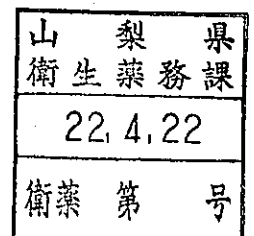 山梨県
衛生薬務課
22.4.22
衛薬第 号